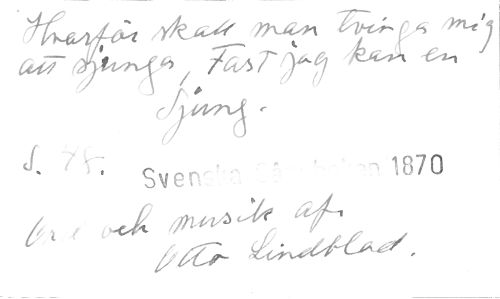 Hvarför skall man tvinga mig
att sjunga, Fast jag kan en
Sjung.
S. 48. Svenska Sångboken 1870
Ord och musik af.
Otto Lindblad.